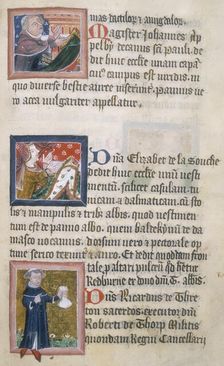 mas tactilor & aungelor.
Magister Johannes Ap
pelby decanus sancti pauli. de
dit huic ecclie unam capā
cui9 campus est viridis. in
quo diverse bestie auree inserunt. pavius
ro acca vulgariter appellatur.
Dña Elizabet de la Souche
dedit huic ecclie unū vesti
mentū. scilicet casulam. tu
nicam & dalmaticam. cū sto
lis & manipulis & tribus albis. quod vestimen
tum est de panno albo. quem baltekynū de da
masco vocamus. dorsum nero & pectorale op
tine serico texitur & auro. Et dedit quoddam fron
tale altari
Redburne
Dñs Ricardus de Thre
ton sacerdos. executor dñi
Roberti de Thorp Militis
quondam Regni Cancellarij